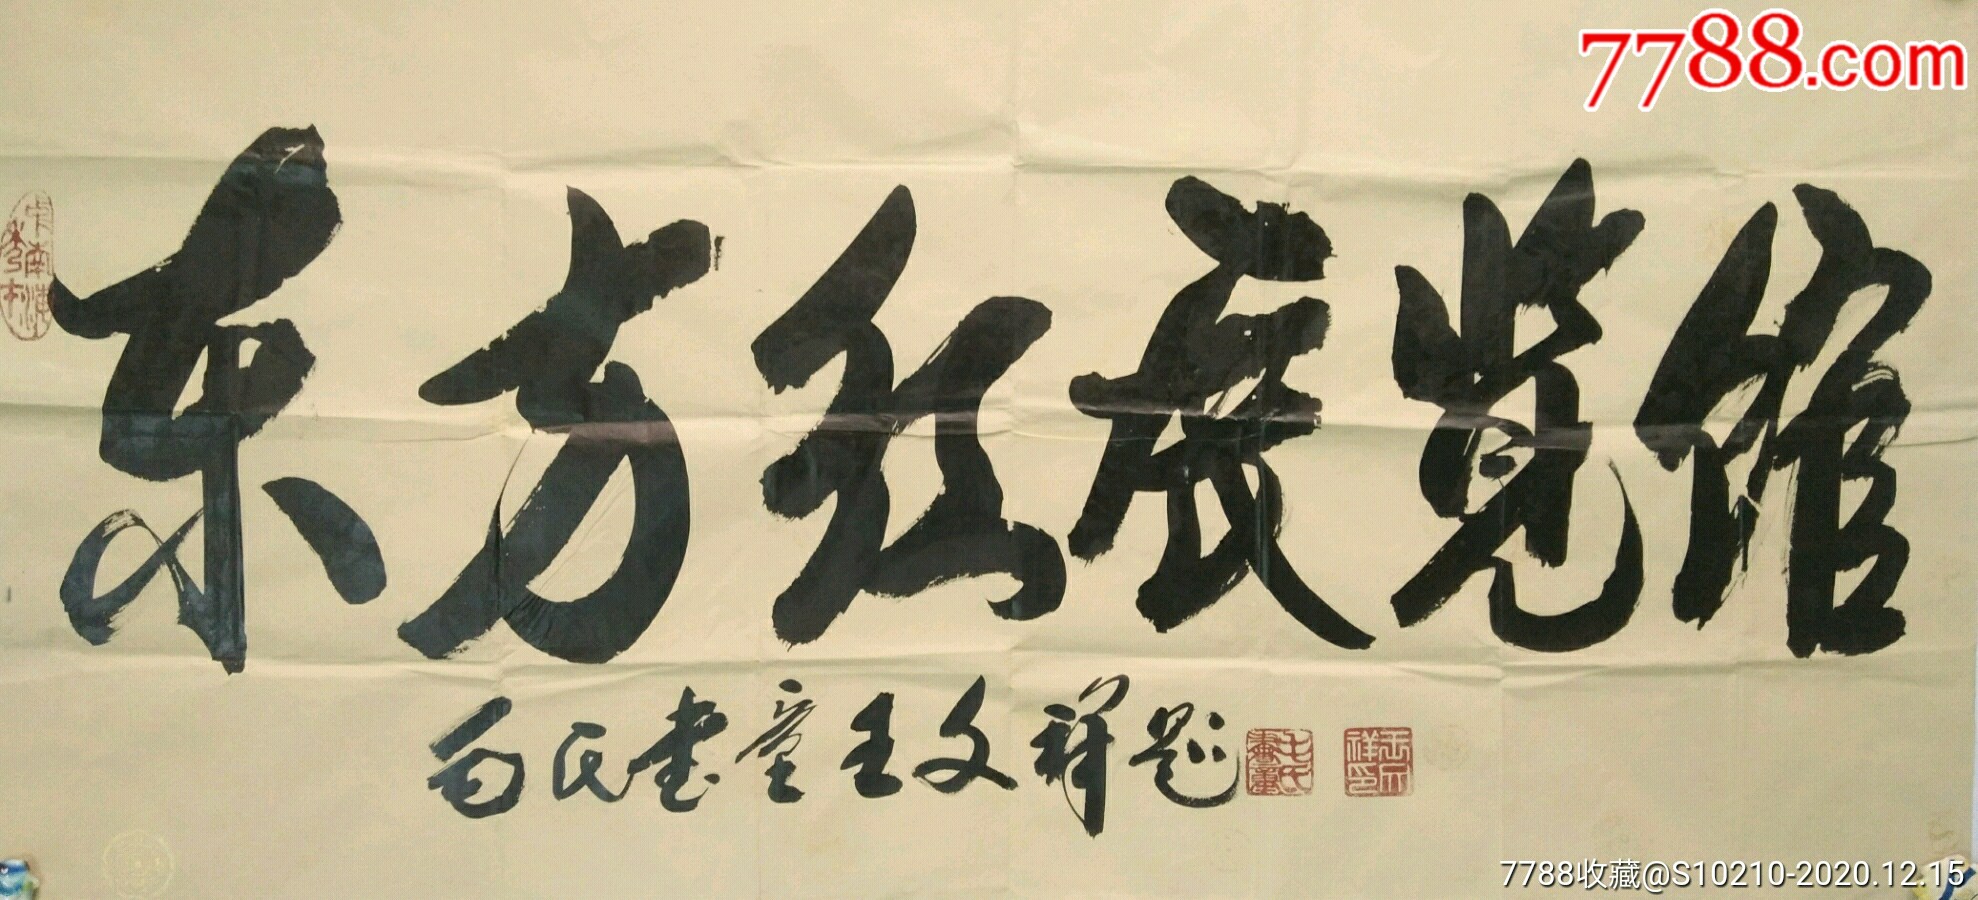 7788.com
东方红展览馆
毛氏书童王文祥题
7788收藏@S10210-2020.12.15